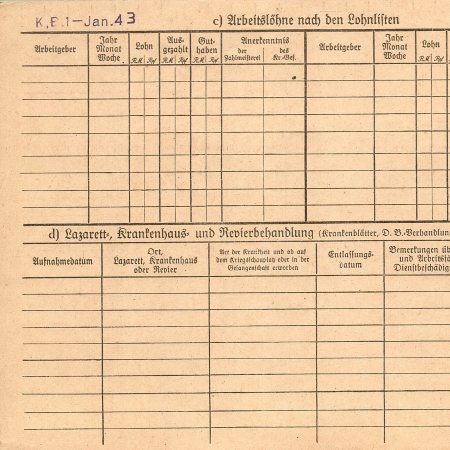 K.P.1-Jan.43
c) Arbeitslöhne nach den Lohnlisten
Arbeitgeber
Jahr
Monat
Woche
Lohn
RM Rpf
Aus-
gezahlt
RM Rpf
Gut-
haben
RM Rpf
Anerkenntnis
der
Zahlmeisterei
des
Kr.-Gef.
Arbeitgeber
Jahr
Monat
Woche
Lohn
RM Rpf
d) Lazarett-, Krankenhaus- und Revierbehandlung (Krankenblätter, D. B.-Verhandlun
Aufnahmedatum
Ort,
Lazarett, Krankenhaus
oder Revier
Art der Krankheit und ob auf
dem Kriegsschauplatz oder in der
Gefangenschaft erworben
Entlassungs-
datum
Bemerkungen üb
und Arbeitsfä
Dienstbeschädig